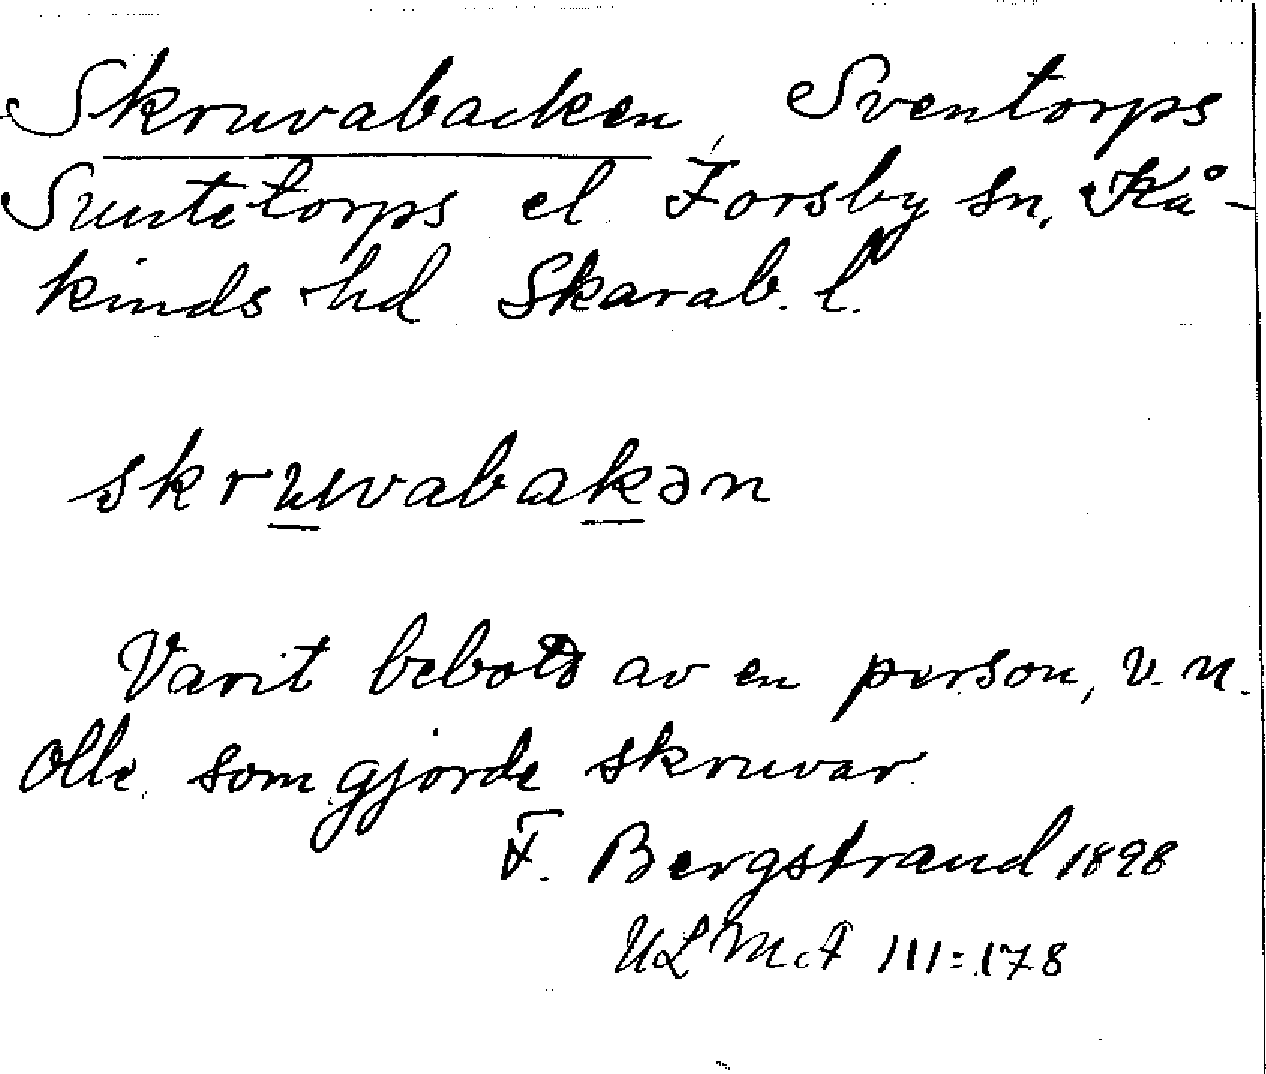 Skruvabacken, Sventorps
Suntetorps el Forsby sn, Kå-
kinds hd Skarab. l.
skruvabakən
Varit bebott av en person, v. n.
Olle, som gjorde skruvar.
F. Bergstrand 1898
ULMA III:178